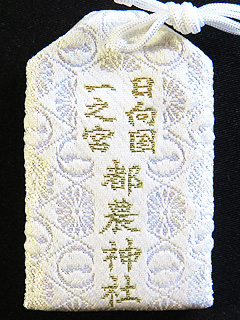 日向国
一之宮
都農神社